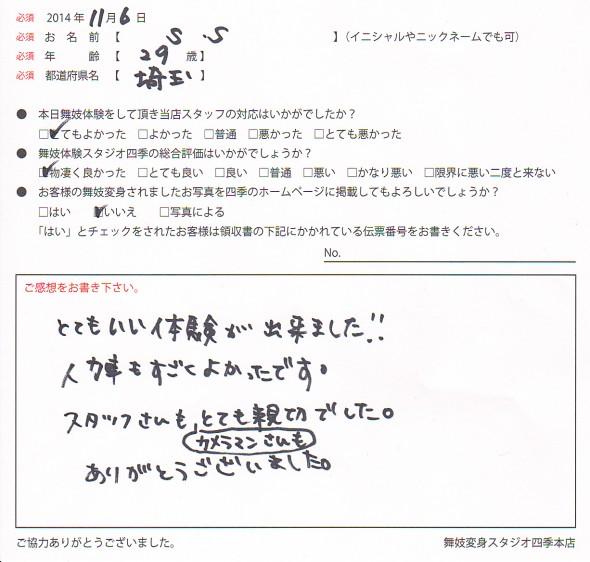 必須 2014年 11月 6日
必須 お名前【 S .S 】(イニシャルやニックネームでも可)
必須 年齢【 29 歳】
必須 都道府県名【 埼玉 】
● 本日舞妓体験をして頂き当店スタッフの対応はいかがでしたか?
□とてもよかった □よかった □普通 □悪かった □とても悪かった
● 舞妓体験スタジオ四季の総合評価はいかがでしょうか?
□物凄く良かった □とても良い □良い □普通 □悪い □かなり悪い □限界に悪い二度と来ない
● お客様の舞妓変身されましたお写真を四季のホームページに掲載してもよろしいでしょうか?
□はい □いいえ □写真による
「はい」とチェックをされたお客様は領収書の下記にかかれている伝票番号をお書きください。
No.
ご感想をお書き下さい。
とてもいい体験が出来ました!!
人力車もすごくよかったです。
スタッフさんも,とても親切でした。
カメラマンさんも
ありがとうございました。
ご協力ありがとうございました。 舞妓変身スタジオ四季本店